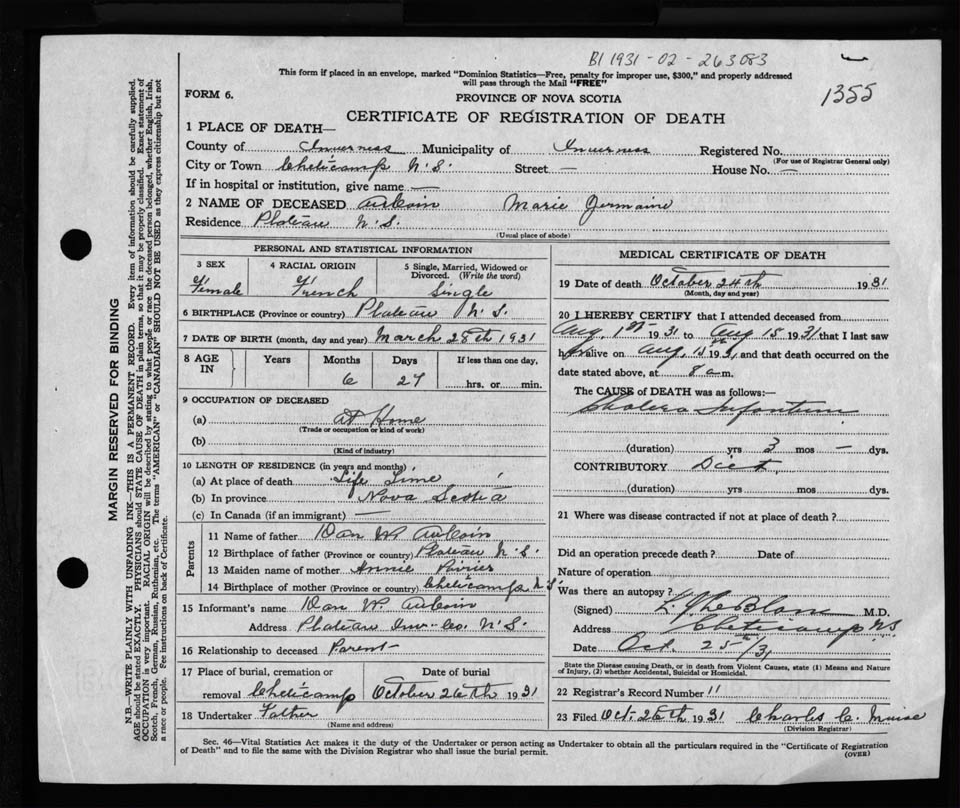 B1 1931-02-263083
This form if placed in an envelope, marked "Dominion Statistics—Free, penalty for improper use, $300," and properly addressed
will pass through the Mail "FREE"
1355
FORM 6.
PROVINCE OF NOVA SCOTIA
CERTIFICATE OF REGISTRATION OF DEATH
1 PLACE OF DEATH—
County of Inverness Municipality of Inverness Registered No.
(For use of Registrar General only)
City or Town Cheticamp N.S. Street — House No. —
If in hospital or institution, give name —
2 NAME OF DECEASED AuCoin Marie Jermaine
Residence Plateau N.S.
(Usual place of abode)
PERSONAL AND STATISTICAL INFORMATION
3 SEX
Female
4 RACIAL ORIGIN
French
5 Single, Married, Widowed or
Divorced. (Write the word)
Single
6 BIRTHPLACE (Province or country) Plateau N.S.
7 DATE OF BIRTH (month, day and year) March 28th 1931
8 AGE IN
Years Months Days If less than one day,
6 27 hrs. or min.
9 OCCUPATION OF DECEASED
(a) At Home
(Trade or occupation or kind of work)
(b)
(Kind of industry)
10 LENGTH OF RESIDENCE (in years and months)
(a) At place of death Life Time
(b) In province Nova Scotia
(c) In Canada (if an immigrant) —
Parents
11 Name of father Dan W. AuCoin
12 Birthplace of father (Province or country) Plateau N.S.
13 Maiden name of mother Annie
14 Birthplace of mother (Province or country) Cheticamp N.S
15 Informant's name Dan W. AuCoin
Address Plateau Inv. Co. N.S.
16 Relationship to deceased Parent
17 Place of burial, cremation or Date of burial
removal Cheticamp October 26th 1931
18 Undertaker Father
(Name and address)
MEDICAL CERTIFICATE OF DEATH
19 Date of death October 24th 1931
(Month, day and year)
20 I HEREBY CERTIFY that I attended deceased from
Aug. 1st 1931 to Aug 15 1931 that I last saw
alive on Aug. 1931, and that death occurred on the
date stated above, at 8 a m.
The CAUSE of DEATH was as follows:
Cholera Infantum
(duration) yrs 3 mos — dys.
CONTRIBUTORY Diet
(duration) yrs mos dys.
21 Where was disease contracted if not at place of death?
Did an operation precede death? Date of
Nature of operation
Was there an autopsy?
(Signed) LeBlanc M.D.
Address Cheticamp NS
Date Oct. 25th/31
State the Disease causing Death, or in death from Violent Causes, state (1) Means and Nature
of Injury, (2) whether Accidental, Suicidal or Homicidal.
22 Registrar's Record Number 11
23 Filed Oct. 26th 1931 Charles C.
(Division Registrar)
Sec. 46—Vital Statistics Act makes it the duty of the Undertaker or person acting as Undertaker to obtain all the particulars required in the "Certificate of Registration
of Death" and to file the same with the Division Registrar who shall issue the burial permit.
(OVER)
MARGIN RESERVED FOR BINDING
N.B.—WRITE PLAINLY WITH UNFADING INK—THIS IS A PERMANENT RECORD. Every item of information should be carefully supplied.
AGE should be stated EXACTLY. PHYSICIANS should STATE CAUSE OF DEATH in plain terms, so that it may be properly classified. Exact statement of
OCCUPATION is very important. RACIAL ORIGIN will be described by stating to what people or race the deceased person belonged, whether English, Irish,
Scotch, French, German, Russian, Ruthenian, etc. The terms "AMERICAN" or "CANADIAN" SHOULD NOT BE USED as they express citizenship but not
a race or people. Fee instructions on back of Certificate.